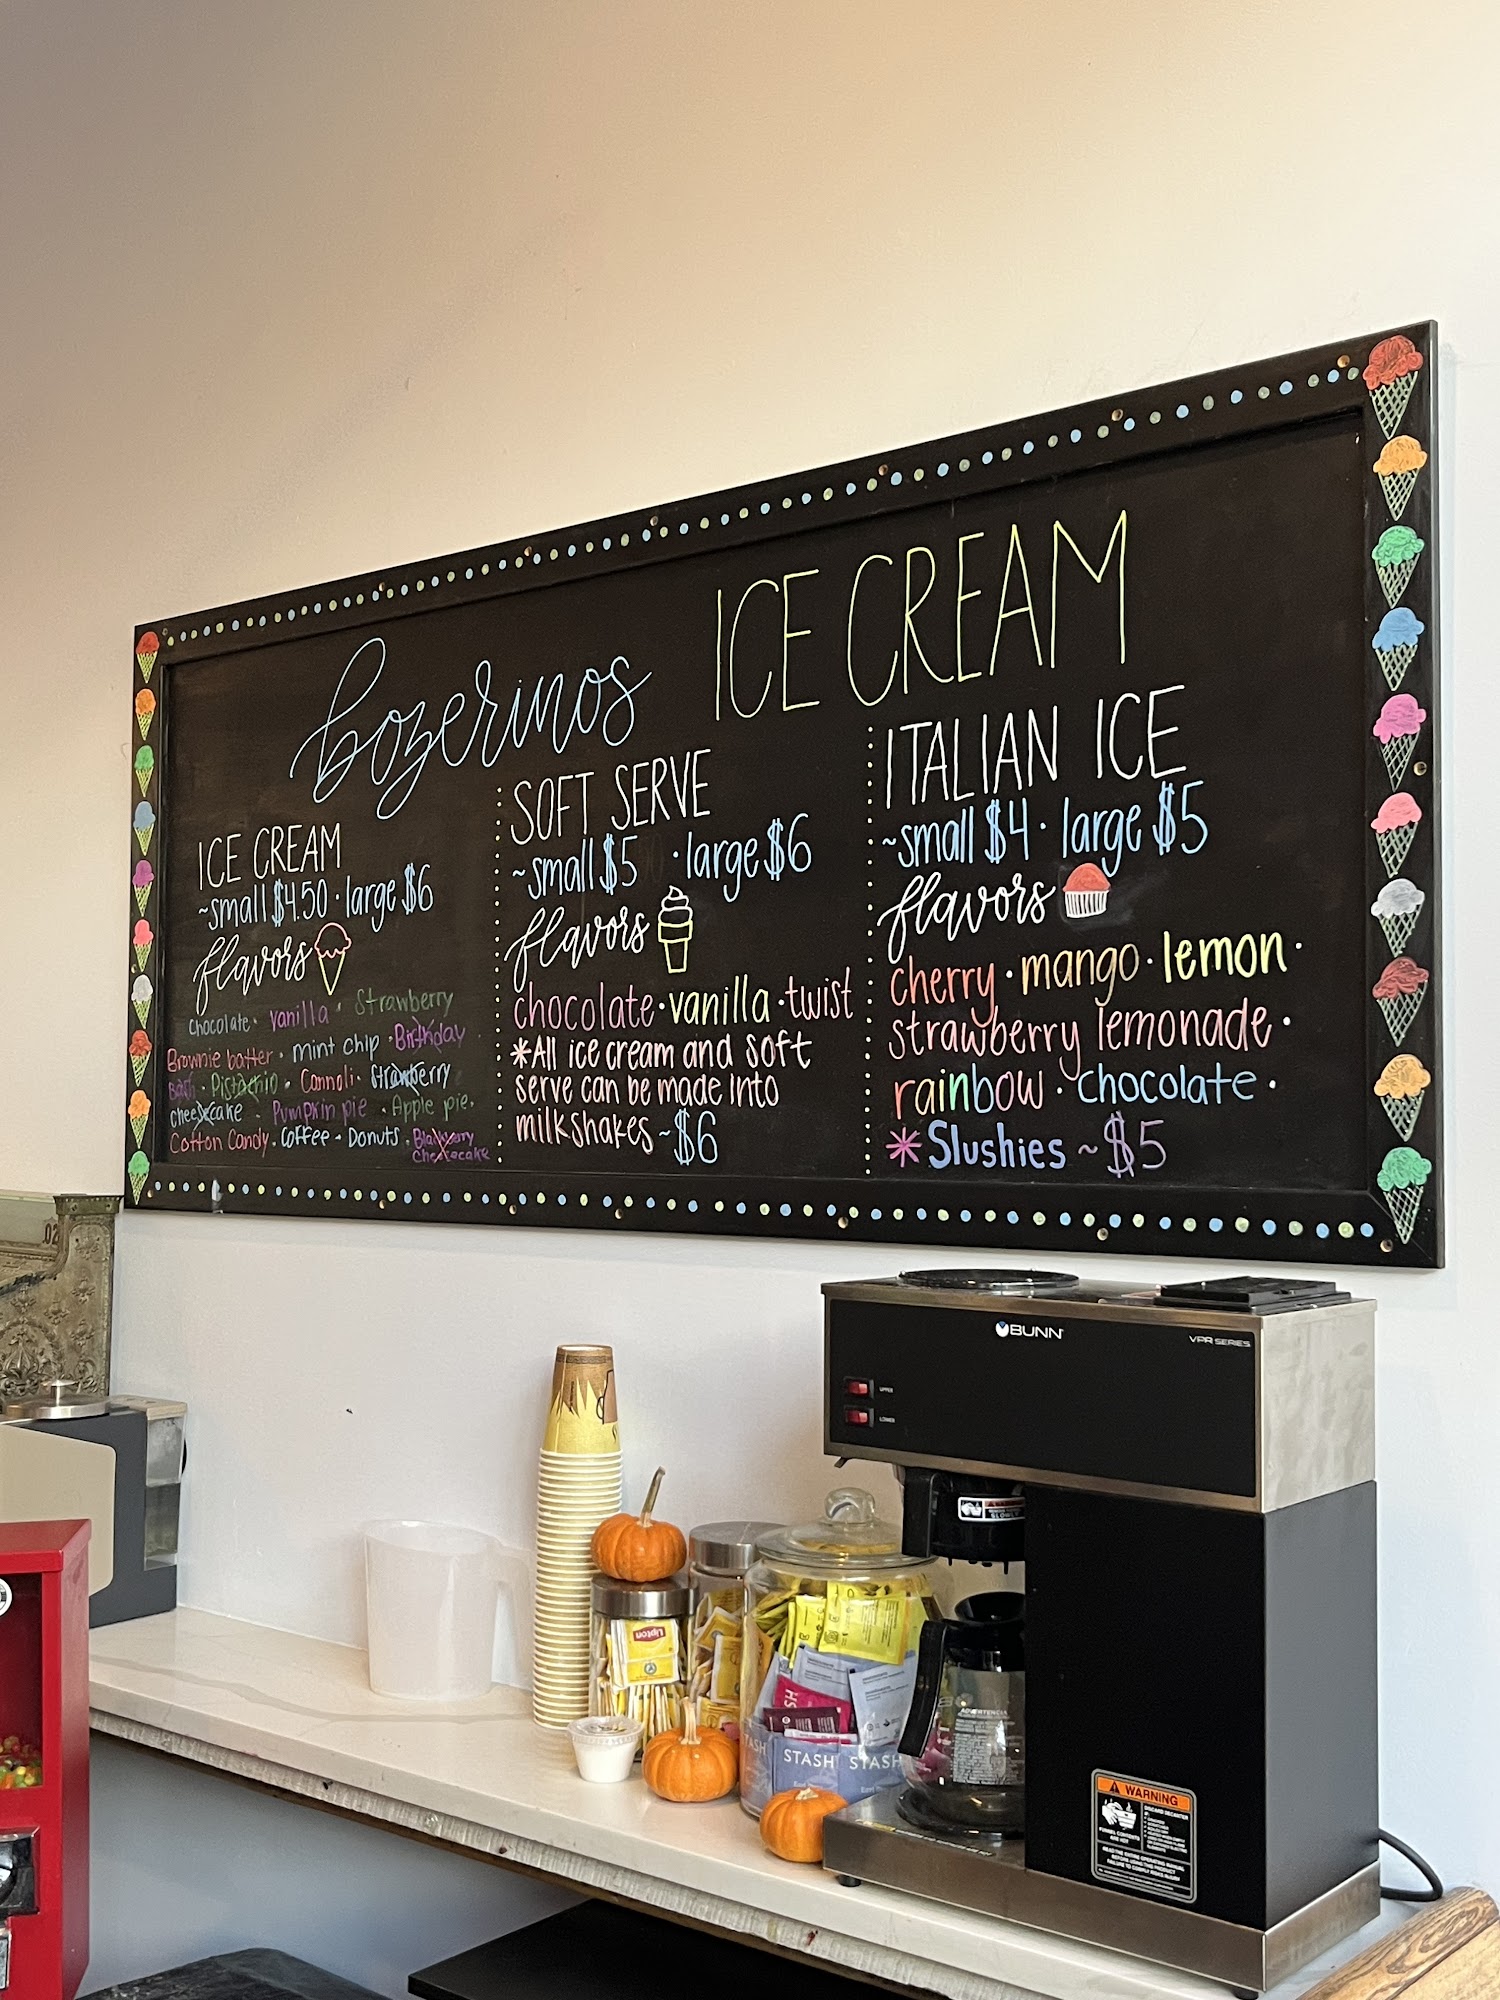 bozerinos ICE CREAM
ICE CREAM
~small $4.50 · large $6
flavors
chocolate · vanilla · Strawberry
Brownie batter · mint chip · Birthday
Bash · Pistachio · Cannoli · Strawberry
cheesecake · Pumpkin pie · Apple pie ·
Cotton Candy · Coffee · Donuts · Blackberry
cheesecake
SOFT SERVE
~small $5 · large $6
flavors
chocolate · vanilla · twist
*All ice cream and soft
serve can be made into
milkshakes ~ $6
ITALIAN ICE
~small $4 · large $5
flavors
cherry · mango · lemon ·
strawberry lemonade ·
rainbow · chocolate ·
*Slushies ~ $5
BUNN
VPR SERIES
UPPER
LOWER
SLOWLY
Lipton
STASH
STASH
STASH
ADVERTENCIA
WARNING
DISCARD DECANTER
IF:
FUNNEL CONTENTS
ARE HOT
READ THE ENTIRE OPERATING MANUAL
BEFORE USING THIS PRODUCT
.02